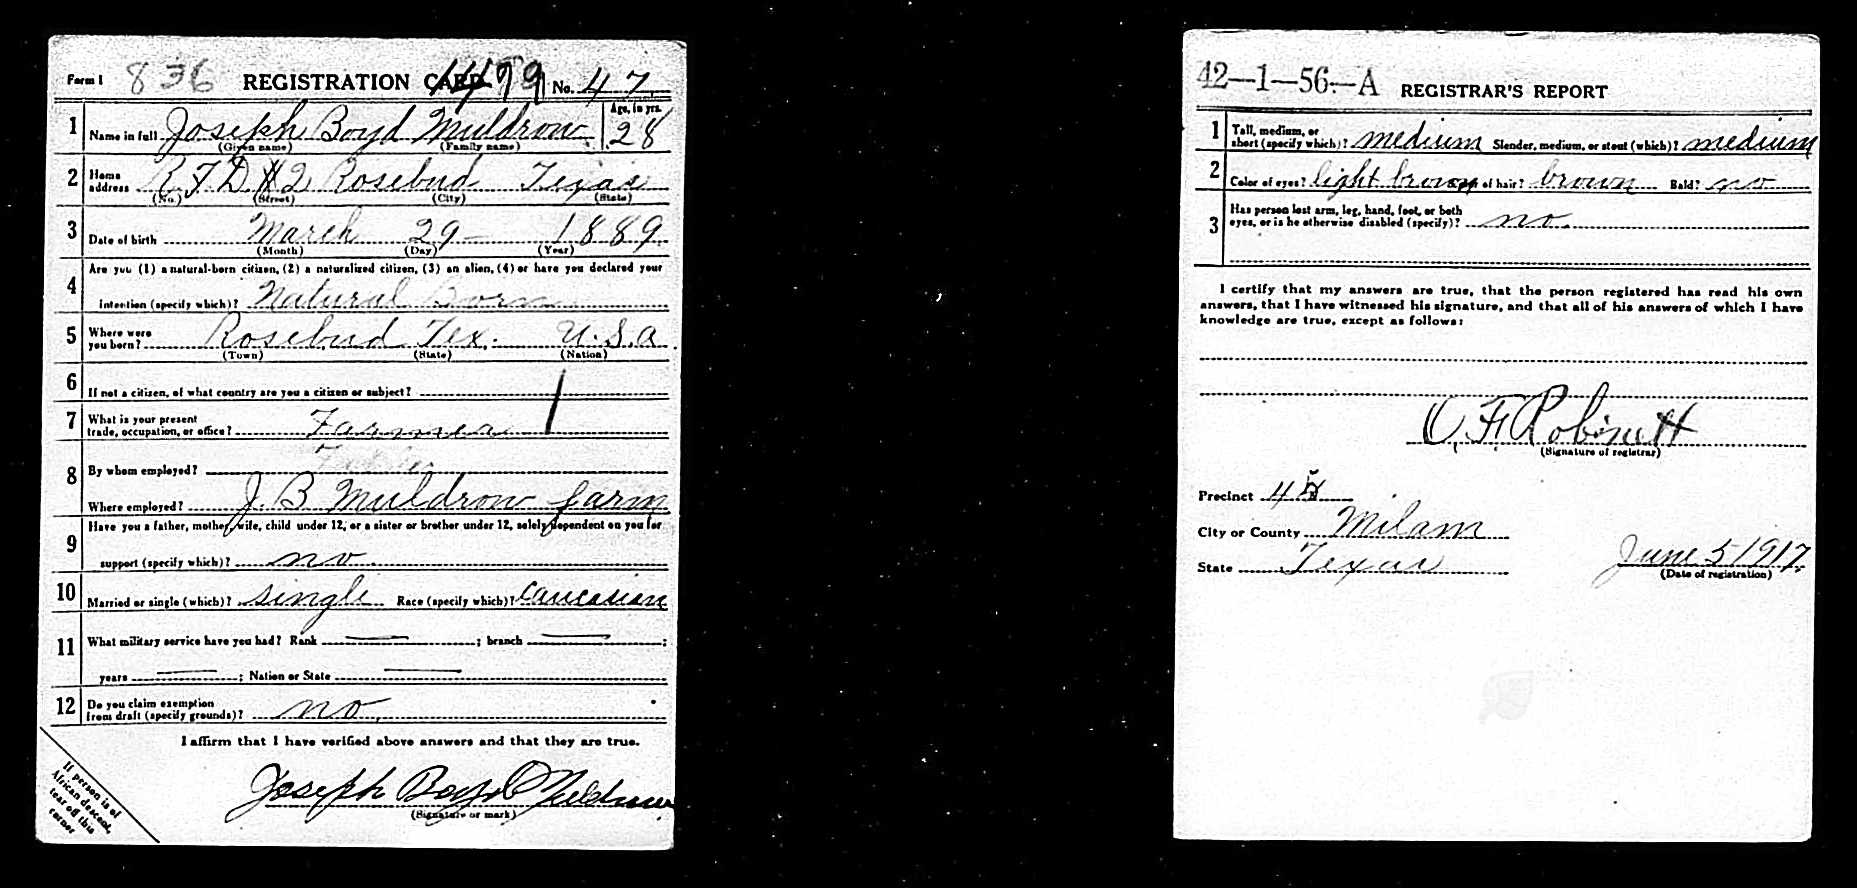 Form 1 836 REGISTRATION CARD No. 47
1 Name in full Joseph Boyd Muldrow Age, in yrs. 28
(Given name) (Family name)
2 Home address R F D #2 Rosebud Texas
(No.) (Street) (City) (State)
3 Date of birth March 29 1889
(Month) (Day) (Year)
4 Are you (1) a natural-born citizen, (2) a naturalized citizen, (3) an alien, (4) or have you declared your
intention (specify which)? Natural Born
5 Where were you born? Rosebud Tex. U.S.A.
(Town) (State) (Nation)
6 If not a citizen, of what country are you a citizen or subject?
7 What is your present trade, occupation, or office? Farmer
8 By whom employed?
Where employed? J. B Muldrow farm
9 Have you a father, mother, wife, child under 12, or a sister or brother under 12, solely dependent on you for
support (specify which)? no.
10 Married or single (which)? single Race (specify which)? Caucasian
11 What military service have you had? Rank — ; branch — ;
years — ; Nation or State —
12 Do you claim exemption from draft (specify grounds)? no.
I affirm that I have verified above answers and that they are true.
Joseph Boyd Muldrow
(Signature or mark)
If person is of
African descent,
tear off this
corner
42—1—56.—A REGISTRAR'S REPORT
1 Tall, medium, or short (specify which)? medium Slender, medium, or stout (which)? medium
2 Color of eyes? light brown Color of hair? brown Bald? no
3 Has person lost arm, leg, hand, foot, or both
eyes, or is he otherwise disabled (specify)? no.
I certify that my answers are true, that the person registered has read his own
answers, that I have witnessed his signature, and that all of his answers of which I have
knowledge are true, except as follows:
O. F. Robinett
(Signature of registrar)
Precinct 4
City or County Milam
State Texas June 5 1917
(Date of registration)